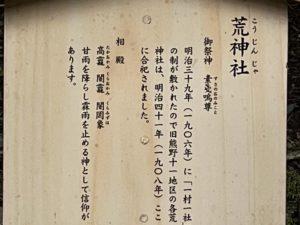 荒神社
こうじんじゃ
御祭神 素戔嗚尊
すさのおのみこと
明治三十九年(一九〇六年)に「一村一社」
の制が敷かれたので旧熊野十一地区の各荒
神社は、明治四十一年(一九〇八年)ここ
に合祀されました。
相殿
高龗 闇龗 闇罔象
たかおかみ くらおかみ くらみずは
甘雨を降らし霖雨を止める神として信仰が
あります。